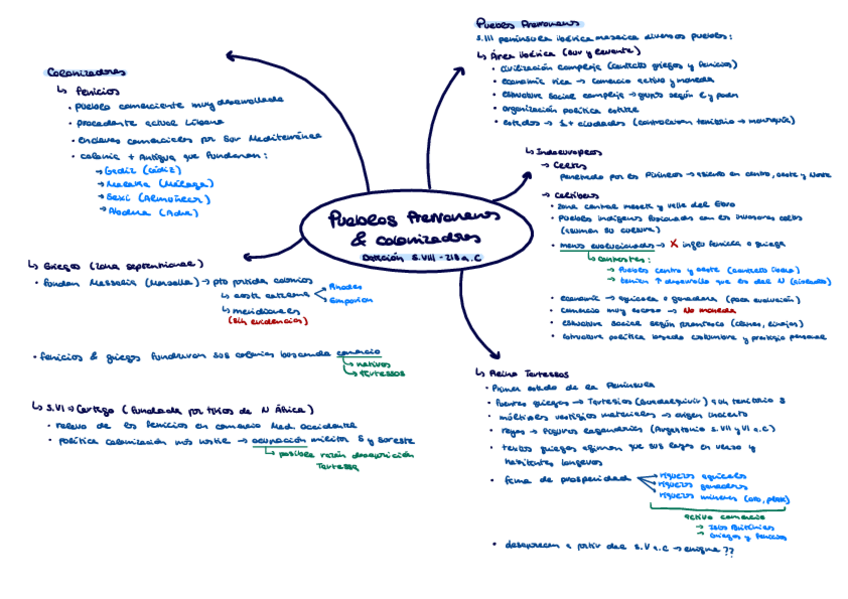 Pueblos Prerromanos
& Colonizadores
Duración S.VIII - 218 a.C
Colonizadores
↳ Fenicios
• Pueblo comerciante muy desarrollado
• procedente actual Líbano
• Enclaves comerciales por Sur Mediterránea
• colonia + Antigua que fundaron:
→ Gadir (Cádiz)
→ Malaka (Málaga)
→ Sexi (Almuñécar)
→ Abdera (Adra)
↳ Griegos (zona septentrional)
• fundan Massalia (Marsella) → pto partida colonios
↳ coste extrema
Rhodes
Emporion
↳ meridionales
(Sin evidencias)
• fenicios & griegos fundaron sus colonias buscando comercio
↳ nativos
↳ tartessos
↳ S.VI → Cartago (fundada por tirios de N África)
• relevo de los fenicios en comercio Med. occidente
• política colonización más hostil → ocupación militar S y Sureste
↳ posible razón desaparición
Tartessos
Pueblos Prerromanos
S.III península ibérica mosaico diversos pueblos:
↳ Área ibérica (sur y levante)
• civilización compleja (contacto griegos y fenicios)
• economía rica → comercio activo y moneda
• estructura social compleja → grupos según € y poder
• organización política estable
• estados → 1 + ciudades (controlaban territorio → monarquía)
↳ Indoeuropeos
→ Celtas
penetrado por los Pirineos → asiento en centro, oeste y Norte
→ Celtíberos
• zona central meseta y valle del Ebro
• Pueblos indígenas fusionados con los invasores celtas
(asumen su cultura)
• menos evolucionados → X influ fenicia o griega
↳ contrastes:
→ Pueblos centro y oeste (contacto íbero)
→ tenían ↑ desarrollo que los del N (aislados)
• economía → agrícola o ganadera (poca evolución)
• comercio muy escaso → No moneda
• estructura social según parentesco (clanes, linajes)
• estructura política basada costumbre y prestigio personal
↳ Reino Tartessos
• Primer estado de la Península
• fuentes griegas → Tartesios (Guadalquivir) y un territorio S
• múltiples vestigios materiales → origen incierto
• reyes → figuras legendarias (Argantonio S.VII y VI a.C)
• textos griegos afirman que sus leyes en verso y
habitantes longevos
• fama de prosperidad
riquezas agrícolas
riquezas ganaderas
riquezas mineras (oro, plata)
activo comercio
→ Islas Británicas
→ Griegos y fenicios
• desaparecen a partir del S.V a.C → enigma ??